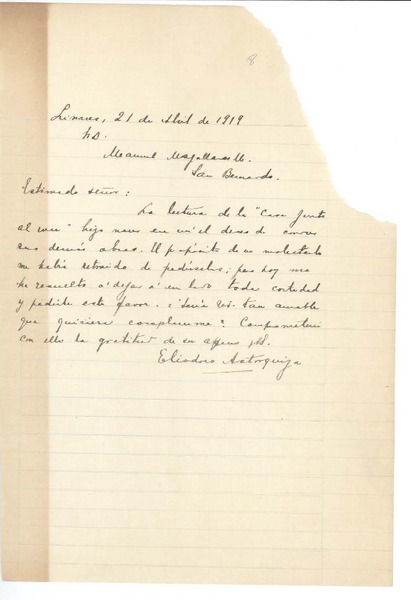 8
Linares, 21 de Abril de 1919
Manuel Magallanes M.
San Bernardo.
Estimado señor:
La lectura de la "Casa junto
al mar" hizo nacer en mí el deseo de conocer
sus demás obras. El propósito de no molestarlo
me había retraido de pedírselas; pero hoy me
he resuelto á dejar á un lado toda cortedad
y pedirle este favor. ¿Sería Ud. tan amable
que quisiera complacerme? Comprometería
con ello la gratitud de su
Eliodoro Astorquiza